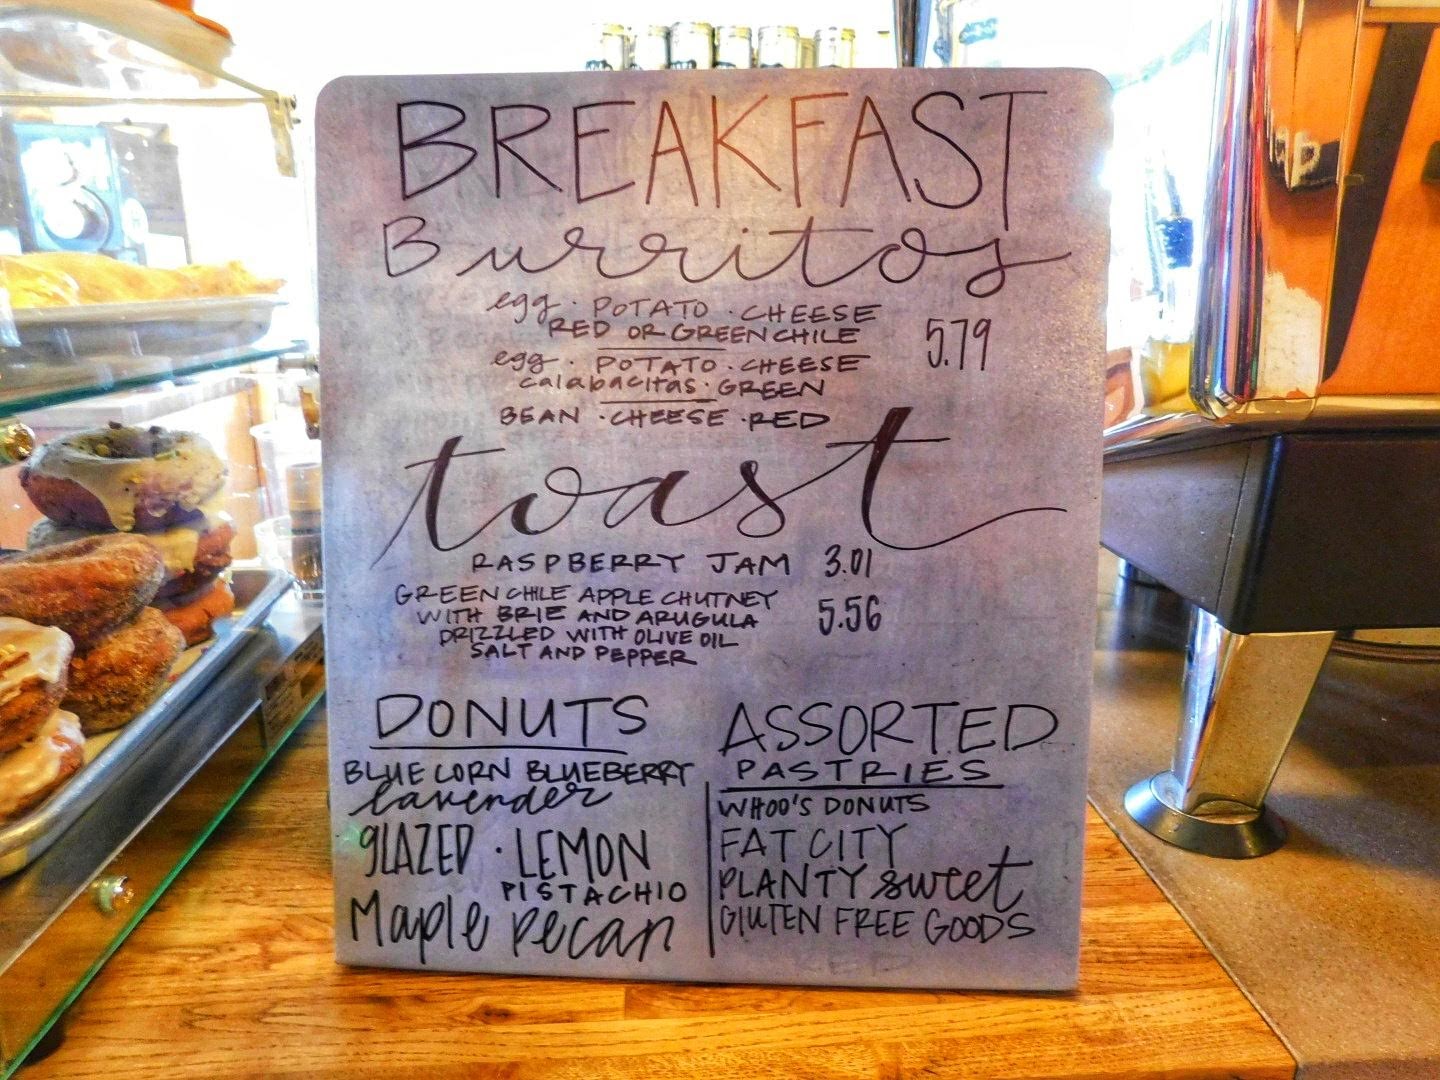 BREAKFAST
Burritos
egg · POTATO · CHEESE
RED OR GREEN CHILE
5.79
egg · POTATO · CHEESE
calabacitas · GREEN
BEAN · CHEESE · RED
toast
RASPBERRY JAM 3.01
GREEN CHILE APPLE CHUTNEY
WITH BRIE AND ARUGULA
DRIZZLED WITH OLIVE OIL
SALT AND PEPPER
5.56
DONUTS
BLUE CORN BLUEBERRY
lavender
GLAZED · LEMON
PISTACHIO
Maple Pecan
ASSORTED
PASTRIES
WHOO'S DONUTS
FAT CITY
PLANTY sweet
GLUTEN FREE GOODS